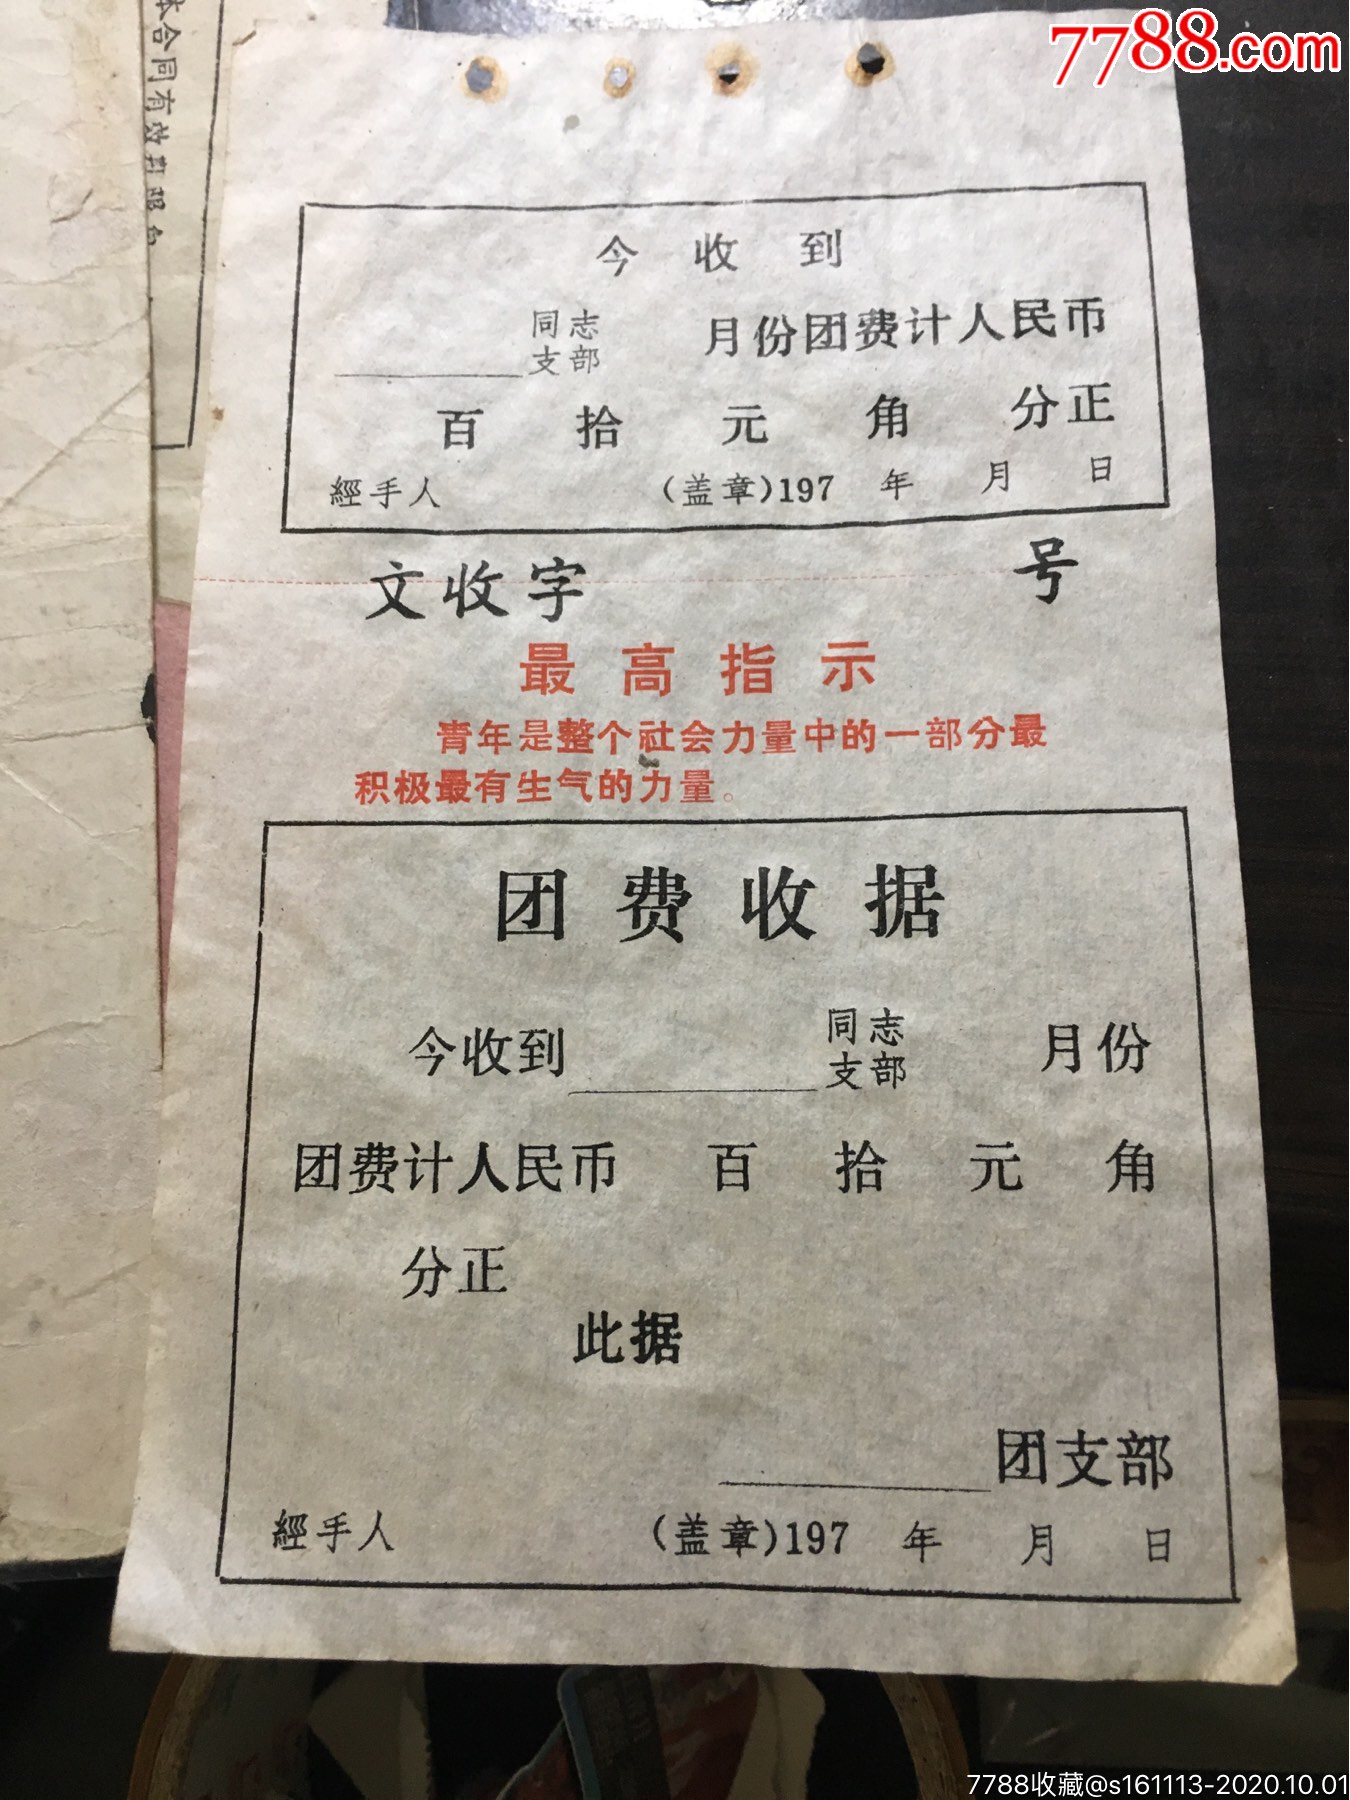 7788.com
本合同有效期限自
今收到
同志
支部
月份团费计人民币
百 拾 元 角 分正
經手人 (盖章)197 年 月 日
文收字 号
最高指示
青年是整个社会力量中的一部分最
积极最有生气的力量。
团费收据
今收到 同志
支部 月份
团费计人民币 百 拾 元 角
分正
此据
团支部
經手人 (盖章)197 年 月 日
7788收藏@s161113-2020.10.01